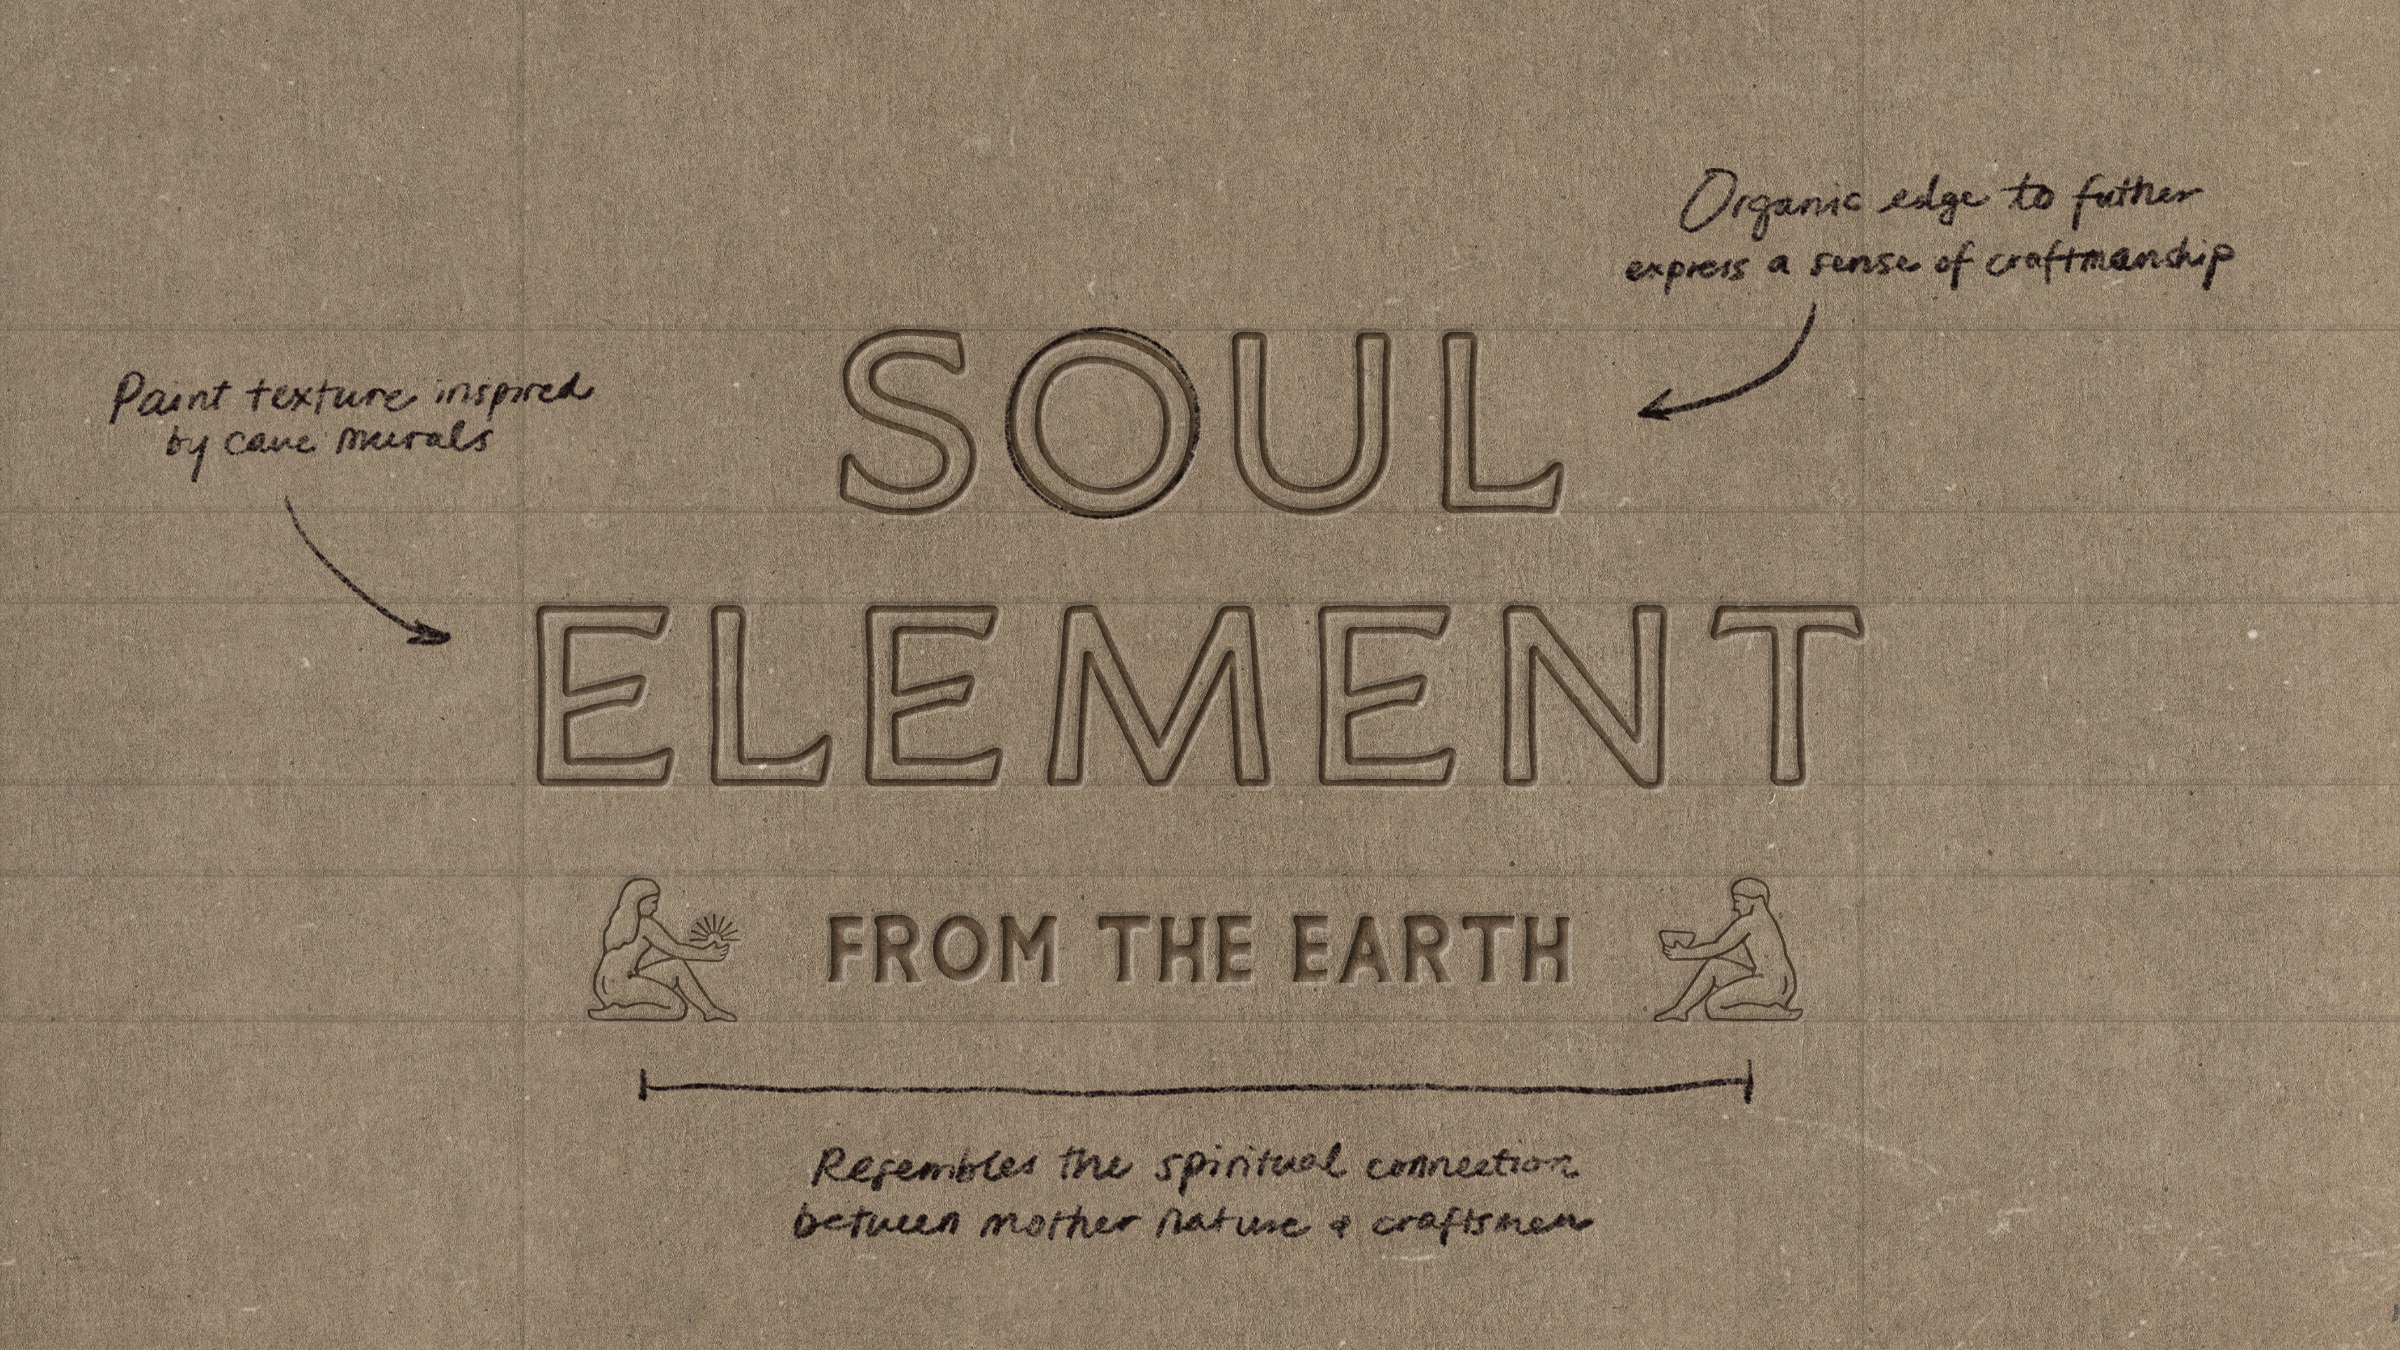 Organic edge to futher
express a sense of craftmanship
Paint texture inspired
by cave murals
SOUL
ELEMENT
FROM THE EARTH
Resembles the spiritual connection
between mother nature & craftsmen